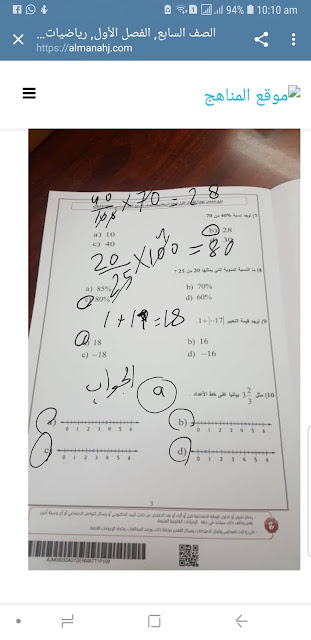 94% 10:10 am
الصف السابع, الفصل الأول, رياضيات...
https://almanahj.com
موقع المناهج
40/100 × 70 = 28
7) أوجد نسبة 40% من 70
a) 10
b) 28
c) 40
20/25 × 100 = 80
8) ما النسبة المئوية التي يمثلها 20 من 25 ؟
a) 85%
b) 70%
c) 80%
d) 60%
1 + 17 = 18
9) أوجد قيمة التعبير 1+|−17|
a) 18
b) 16
c) −18
d) −16
الجواب a
10) مثل 3 2/3 بيانيا على خط الأعداد .
a) 0 1 2 3 4 5 6
b) 0 1 2 3 4 5 6
c) 0 1 2 3 4 5 6
d) 0 1 2 3 4 5 6
3